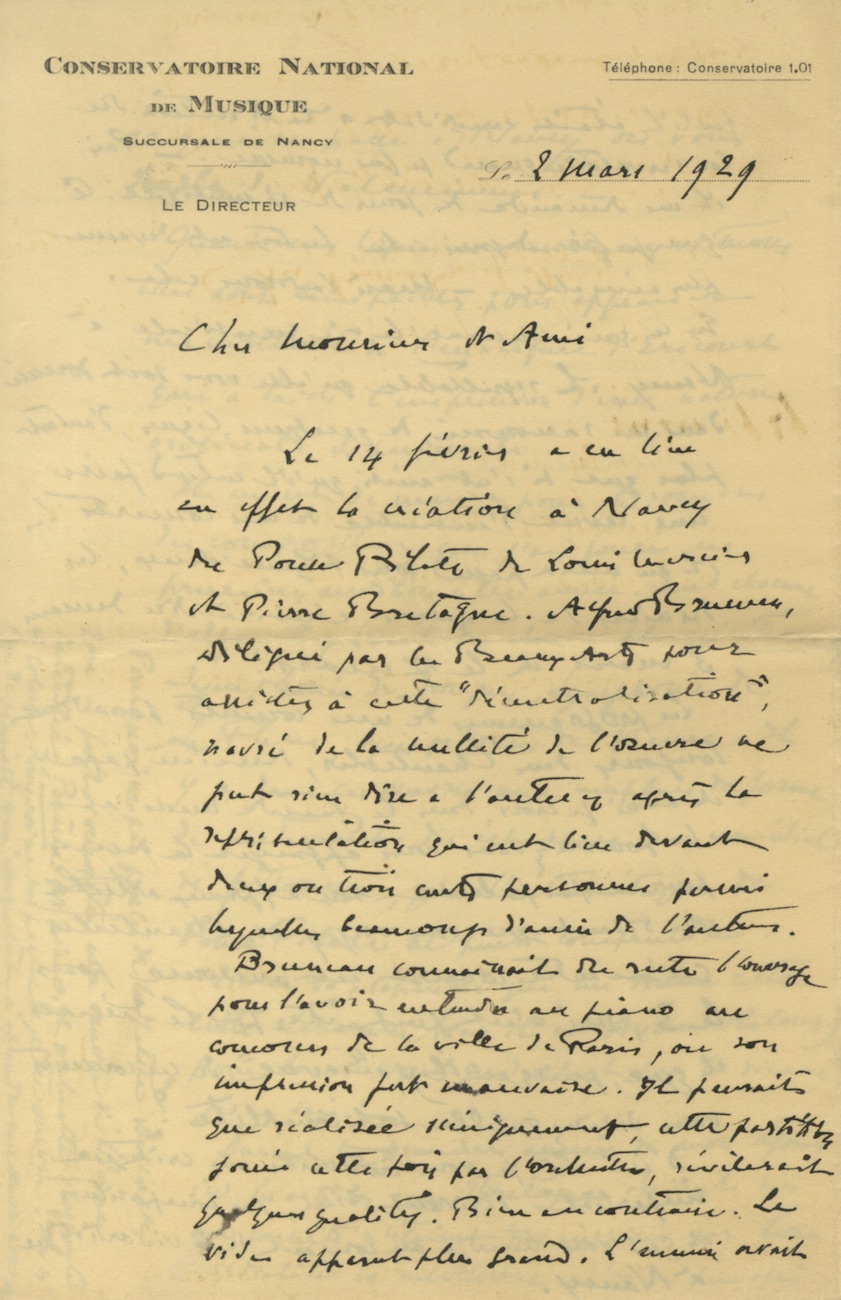 CONSERVATOIRE NATIONAL
DE MUSIQUE
SUCCURSALE DE NANCY
LE DIRECTEUR
Téléphone : Conservatoire 1.01
Le 2 mars 1929
Cher Monsieur et Ami
Le 14 février a eu lieu
en effet la création à Nancy
du Ponce Pilate de Louis Mercier
et Pierre Bretagne. Alfred Bruneau,
délégué par les Beaux Arts pour
assister à cette "décentralisation",
navré de la nullité de l'oeuvre ne
put rien dire a l'auteur après la
représentation qui eut lieu devant
deux ou trois cents personnes parmi
lesquelles beaucoup d'amis de l'auteur.
Bruneau connaissait du reste l'ouvrage
pour l'avoir entendu au piano au
concours de la ville de Paris, où son
impression fut mauvaise. Il pensait
que réalisée scéniquement, cette partition
jouée cette fois par l'orchestre, révèlerait
quelques qualités. Bien au contraire. Le
vide apparut plus grand. L'ennui avait